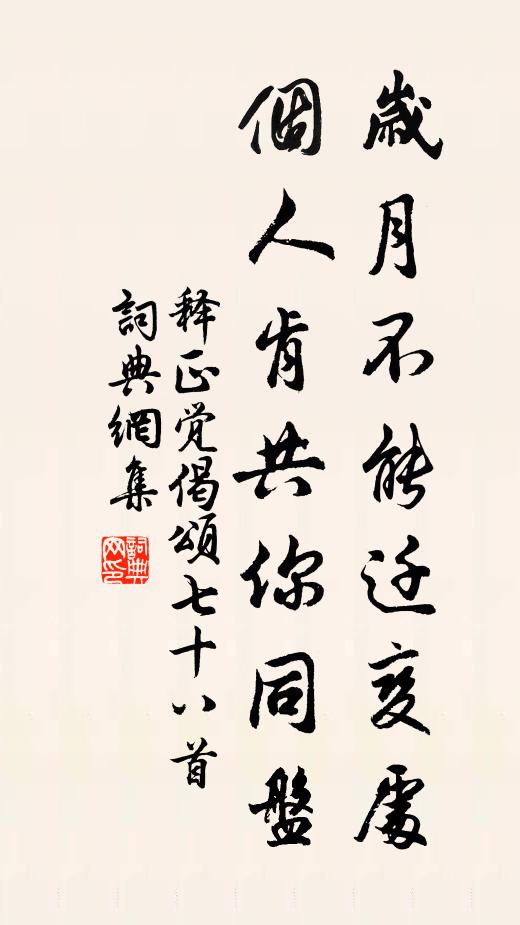 歲月不能迁变處
個人肯共你同盤
释正觉偈頌七十八首
詞典網集
詞典网印